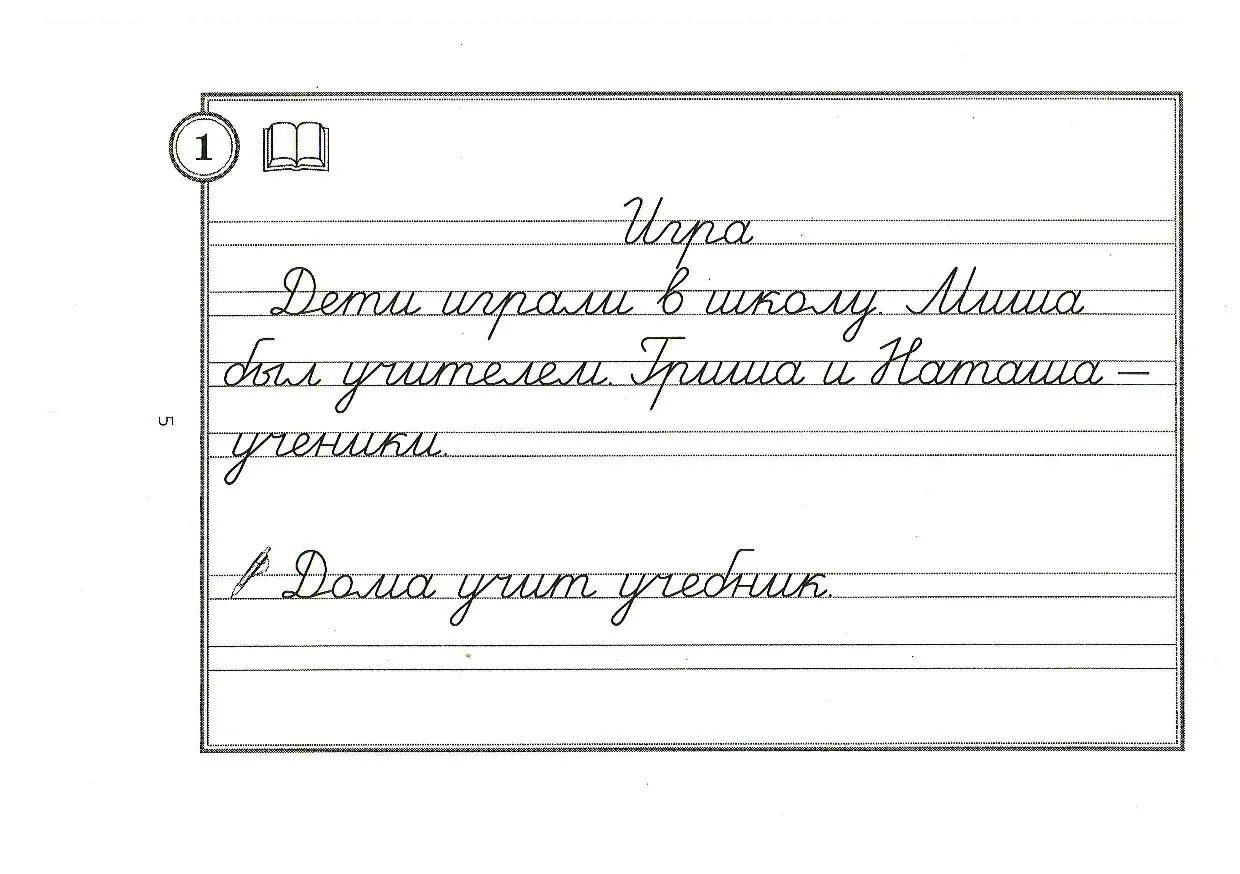 1
Игра
Дети играли в школу. Миша
был учителем. Гриша и Наташа –
ученики.
5
Дома учит учебник.